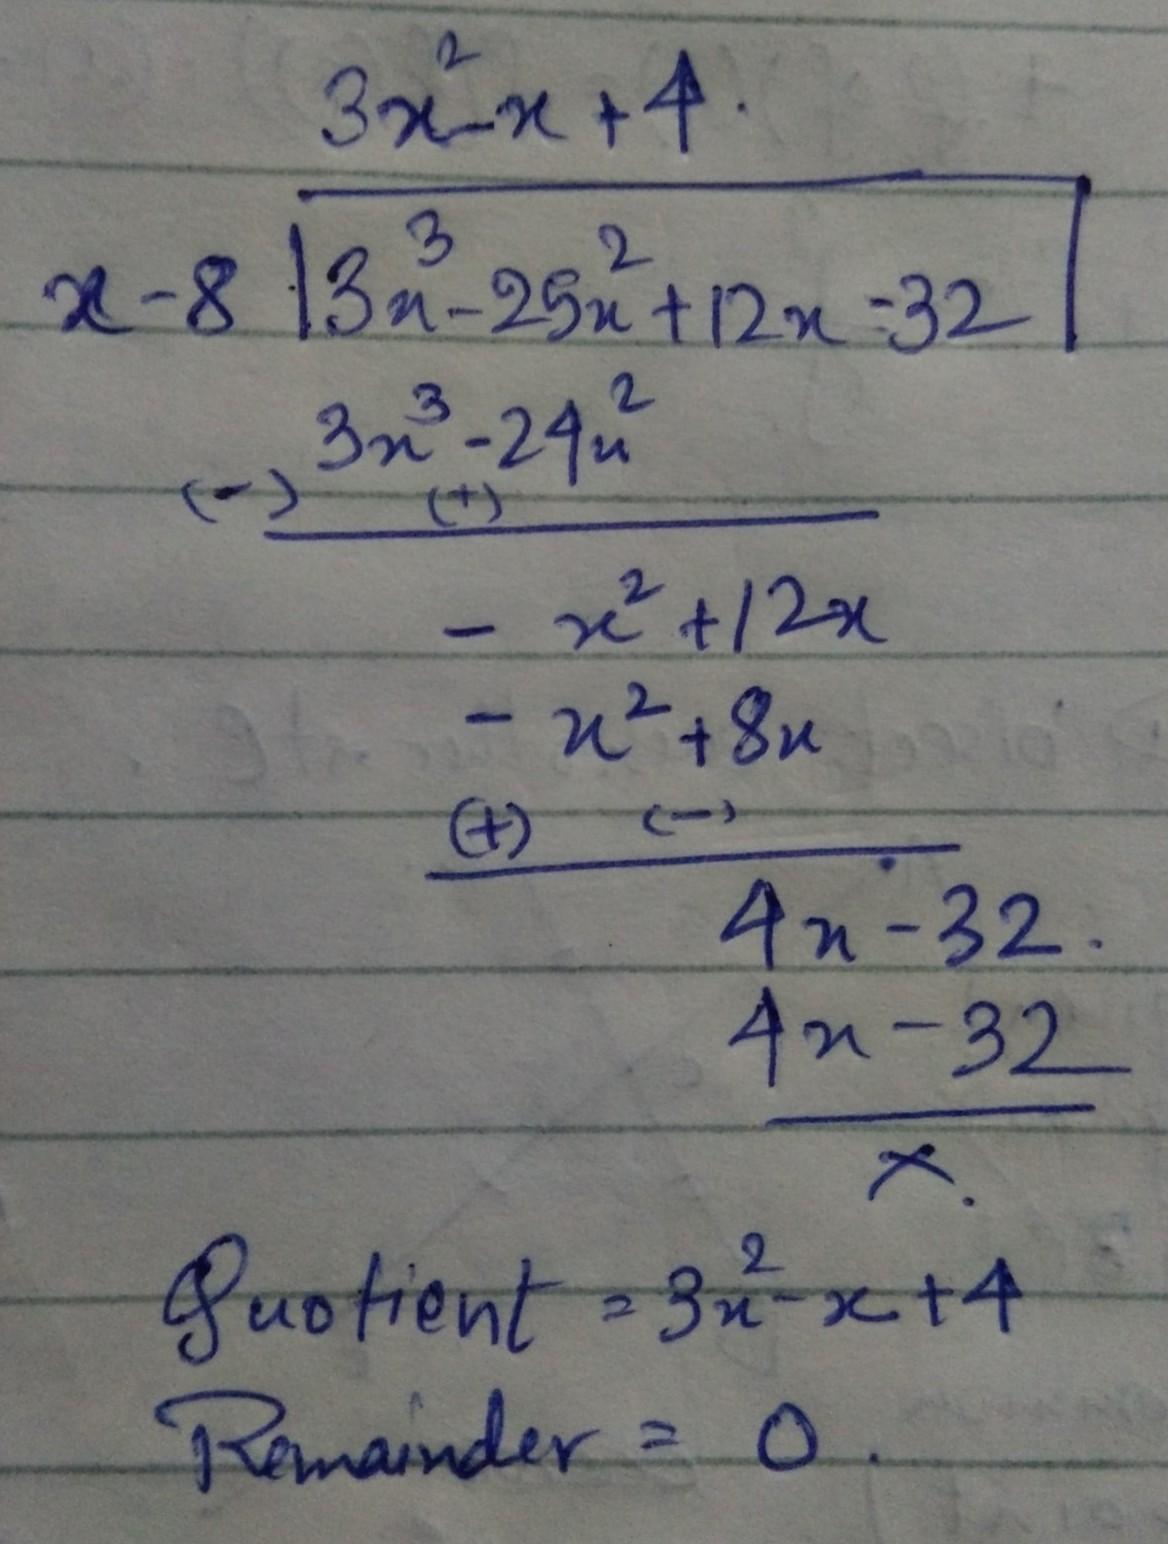 3x²-x+4.
x-8 |3x³-25x²+12x-32|
3x³-24x²
(-) (+)
- x²+12x
- x²+8x
(+) (-)
4x-32.
4x-32
×.
Quotient = 3x²-x+4
Remainder = 0.